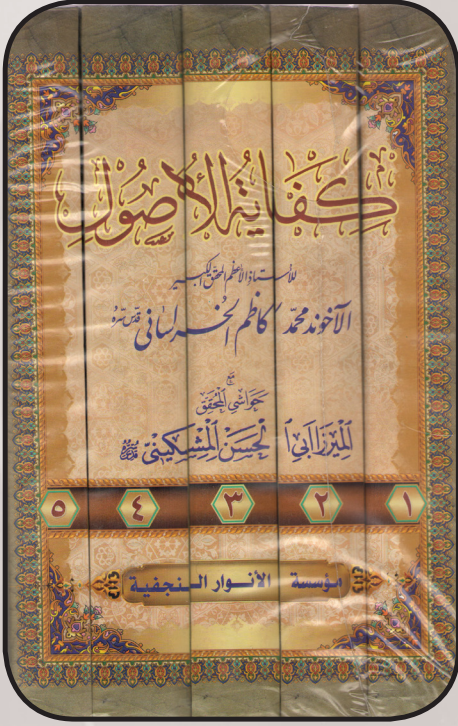 كفاية الأصول
للأستاذ الأعظم المحقق الكبير
الآخوند محمد كاظم الخراساني قدس سره
مع
حواشي المحقق
الميرزا أبي الحسن المشكيني
١ ٢ ٣ ٤ ٥
مؤسسة الأنوار النجفية